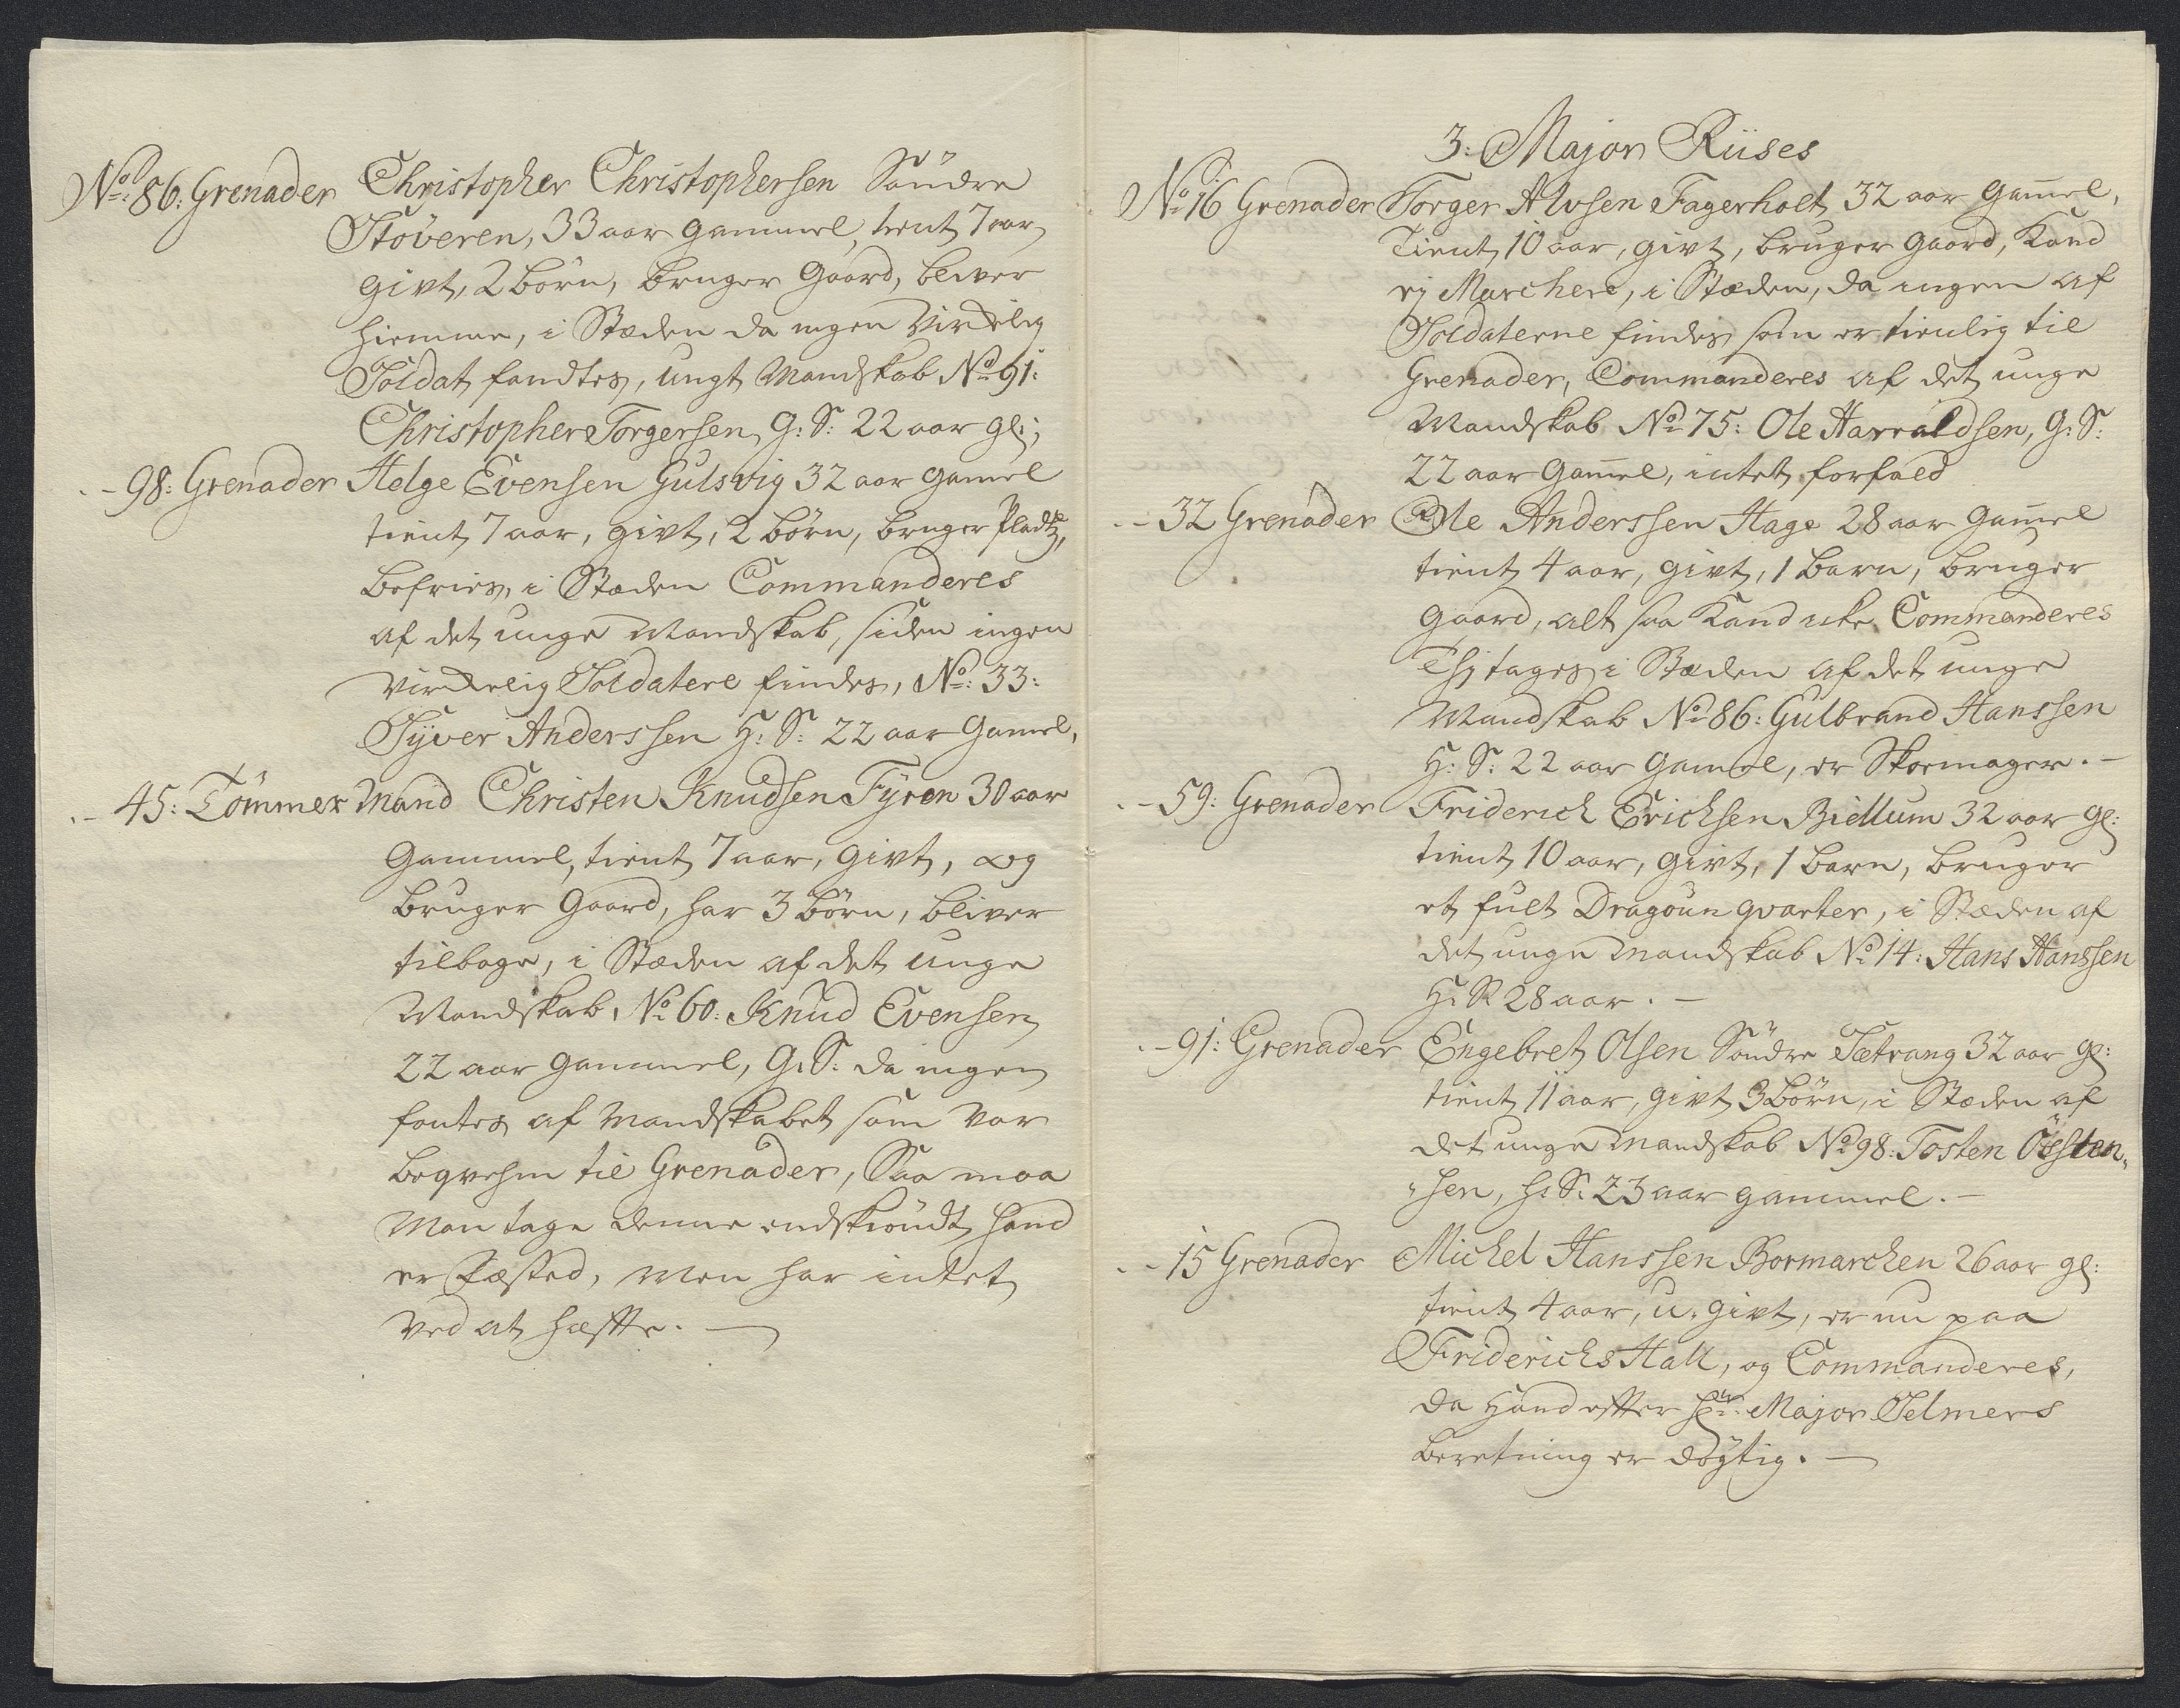 No: 86: Grenader Christopher Christophersen Söndre
Stöveren, 33 aar gammel, tient 7 aar,
givt, 2 börn, bruger Gaard, bliver
hiemme, i Stæden da ingen Virkelig
Soldat fandtes, ungt Mandskab No 91:
Christopher Torgersen, G: S: 22 aar gl:;
- 98: Grenader Helge Evensen Gulsvig 32 aar Gamel
tient 7 aar, givt, 2 börn, bruger Pladtz,
befries, i Stæden Commanderes
af det unge Mandskab, siden ingen
Virkelig Soldatere findes, No: 33:
Syver Anderssen H: S: 22 aar Gamel,
- 45: Tömmer Mand Christen Knudsen Fyren 30 aar
Gammel, tient 7 aar, givt, og
bruger Gaard, har 3 börn, bliver
tilbage, i Stæden af det unge
Mandskab, No 60: Knud Evensen
22 aar gammel, G: S: da ingen
fantes af Mandskabet som var
beqvehm til Grenader, Saa maa
Man tage denne endskiöndt hand
er fæsted, men har intet
ved at hæffte. —
3: Major Riises
No 16 Grenader Torger Alvsen Fagerholt 32 aar Gamel,
Tient 10 aar, givt, bruger Gaard, Kand
ej Marchere, i Stæden, da ingen af
Soldaterne findes som er tienlig til
Grenader, Commanderes af det unge
Mandskab No 75: Ole Harraldsen, G: S:
22 aar Gamel, intet forfald
- 32 Grenader Ole Anderssen Hage 28 aar Gamel
tient 4 aar, givt, 1 barn, bruger
Gaard, alt saa Kand icke Commanderes
Thj tages i Stæden af det unge
Mandskab No 86: Gulbrand Hanssen
H: S: 22 aar Gamel, er Skoemager. -
- 59: Grenader Friderich Erichsen Biellum 32 aar gl:
tient 10 aar, givt, 1 barn, bruger
et fult Dragoun qvarter, i Stæden af
det unge Mandskab No 14: Hans Hanssen
H: S: 28 aar. -
- 91: Grenader Engebret Olsen Söndre Tætrang 32 aar gl:
tient 11 aar, givt 3 börn, i Stæden af
det unge Mandskab No 98: Tosten Össten-
sen, H: S: 23 aar gammel. -
- 15 Grenader Michel Hanssen Bormarchen 26 aar gl:
tient 4 aar, u-givt, er nu paa
Friderichs Hall, og Commanderes,
da Hand effter Hr: Major Selmers
beretning er döytig. —